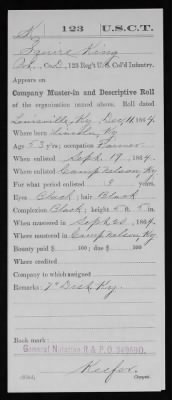 K 123 U.S.C.T.
Squire King
Pvt., Co. D, 123 Reg't U.S. Col'd Infantry.
Appears on
Company Muster-in and Descriptive Roll
of the organization named above. Roll dated
Louisville, Ky. Dec. 11, 1864.
Where born Lincoln, Ky
Age 53 y'rs; occupation Farmer
When enlisted Sept. 19, 1864.
Where enlisted Camp Nelson, Ky
For what period enlisted 3 years.
Eyes Black; hair Black
Complexion Black; height 5 ft. 5 in.
When mustered in Sept 20, 1864.
Where mustered in Camp Nelson, Ky
Bounty paid $ 100; due $ 100
Where credited
Company to which assigned
Remarks: 7" Dist, Ky.
Book mark:
General Notation R & P.O.
Keefer
(356d) Copyist.